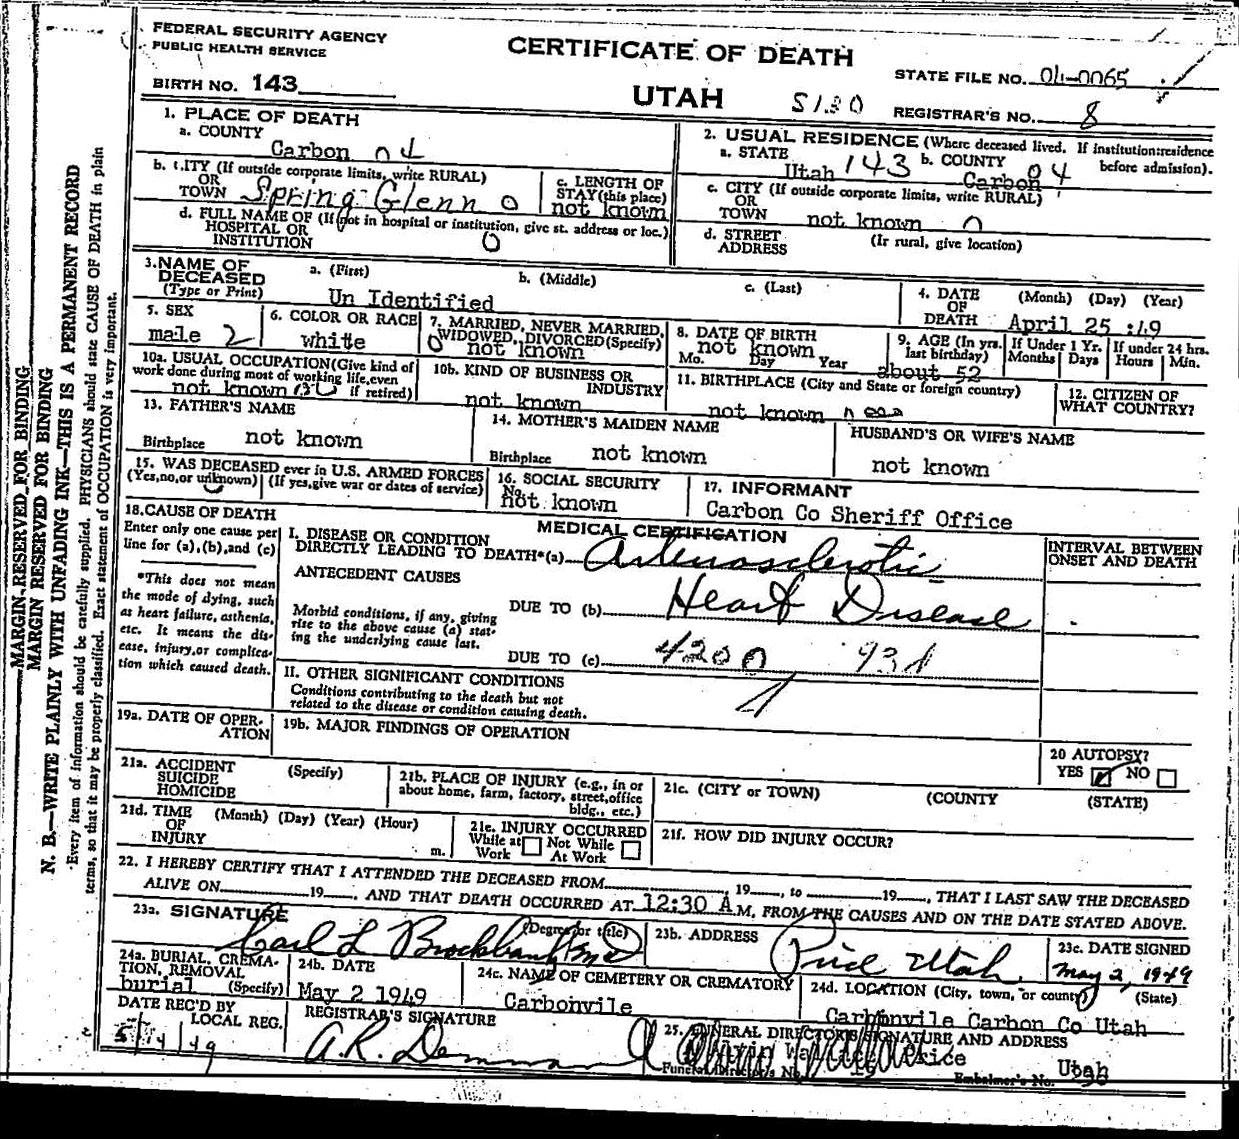 FEDERAL SECURITY AGENCY
PUBLIC HEALTH SERVICE
CERTIFICATE OF DEATH
STATE FILE NO. 04-0065
BIRTH NO. 143
UTAH 5130
REGISTRAR'S NO. 8
1. PLACE OF DEATH
a. COUNTY
Carbon 04
b. CITY (If outside corporate limits, write RURAL)
OR
TOWN Spring Glenn 0
c. LENGTH OF
STAY (this place)
not known
d. FULL NAME OF (If not in hospital or institution, give st. address or loc.)
HOSPITAL OR
INSTITUTION 0
2. USUAL RESIDENCE (Where deceased lived. If institution: residence
before admission).
a. STATE
Utah 143
b. COUNTY
Carbon 04
c. CITY (If outside corporate limits, write RURAL)
OR
TOWN not known 0
d. STREET (If rural, give location)
ADDRESS
3. NAME OF
DECEASED
(Type or Print)
a. (First) b. (Middle) c. (Last)
Un Identified
4. DATE (Month) (Day) (Year)
OF
DEATH April 25 :49
5. SEX
male 2
6. COLOR OR RACE
white
7. MARRIED, NEVER MARRIED,
WIDOWED, DIVORCED (Specify)
0 not known
8. DATE OF BIRTH
not known
Mo. Day Year
9. AGE (In yrs.
last birthday)
about 52
If Under 1 Yr.
Months Days
If under 24 hrs.
Hours Min.
10a. USUAL OCCUPATION (Give kind of
work done during most of working life, even
if retired)
not known
10b. KIND OF BUSINESS OR
INDUSTRY
not known
11. BIRTHPLACE (City and State or foreign country)
not known
12. CITIZEN OF
WHAT COUNTRY?
13. FATHER'S NAME
Birthplace not known
14. MOTHER'S MAIDEN NAME
Birthplace not known
HUSBAND'S OR WIFE'S NAME
not known
15. WAS DECEASED ever in U.S. ARMED FORCES
(Yes, no, or unknown) (If yes, give war or dates of service)
16. SOCIAL SECURITY
No.
not known
17. INFORMANT
Carbon Co Sheriff Office
18. CAUSE OF DEATH
Enter only one cause per
line for (a), (b), and (c)
*This does not mean
the mode of dying, such
as heart failure, asthenia,
etc. It means the dis-
ease, injury, or complica-
tion which caused death.
MEDICAL CERTIFICATION
I. DISEASE OR CONDITION
DIRECTLY LEADING TO DEATH*(a) Arteriosclerotic
ANTECEDENT CAUSES
DUE TO (b) Heart Disease
Morbid conditions, if any, giving
rise to the above cause (a) stat-
ing the underlying cause last.
DUE TO (c) 4200 93d
II. OTHER SIGNIFICANT CONDITIONS
Conditions contributing to the death but not
related to the disease or condition causing death.
1
INTERVAL BETWEEN
ONSET AND DEATH
19a. DATE OF OPER-
ATION
19b. MAJOR FINDINGS OF OPERATION
20 AUTOPSY?
YES NO
21a. ACCIDENT (Specify)
SUICIDE
HOMICIDE
21b. PLACE OF INJURY (e.g., in or
about home, farm, factory, street, office
bldg., etc.)
21c. (CITY or TOWN) (COUNTY (STATE)
21d. TIME (Month) (Day) (Year) (Hour)
OF
INJURY m.
21e. INJURY OCCURRED
While at Not While
Work At Work
21f. HOW DID INJURY OCCUR?
22. I HEREBY CERTIFY THAT I ATTENDED THE DECEASED FROM , 19 , to 19 , THAT I LAST SAW THE DECEASED
ALIVE ON 19 , AND THAT DEATH OCCURRED AT 12:30 A M, FROM THE CAUSES AND ON THE DATE STATED ABOVE.
23a. SIGNATURE (Degree or title)
Carl L Brockbank MD
23b. ADDRESS
Price Utah
23c. DATE SIGNED
May 2, 1949
24a. BURIAL, CREMA-
TION, REMOVAL
burial (Specify)
24b. DATE
May 2 1949
24c. NAME OF CEMETERY OR CREMATORY
Carbonvile
24d. LOCATION (City, town, or county) (State)
Carbonvile Carbon Co Utah
DATE REC'D BY
LOCAL REG.
5/14/49
REGISTRAR'S SIGNATURE
A.R.
25. FUNERAL DIRECTOR'S SIGNATURE AND ADDRESS
Price
Utah
Funeral Director's No.
Embalmer's No.
MARGIN RESERVED FOR BINDING
MARGIN RESERVED FOR BINDING
N. B.—WRITE PLAINLY WITH UNFADING INK—THIS IS A PERMANENT RECORD
Every item of information should be carefully supplied. PHYSICIANS should state CAUSE OF DEATH in plain
terms, so that it may be properly classified. Exact statement of OCCUPATION is very important.